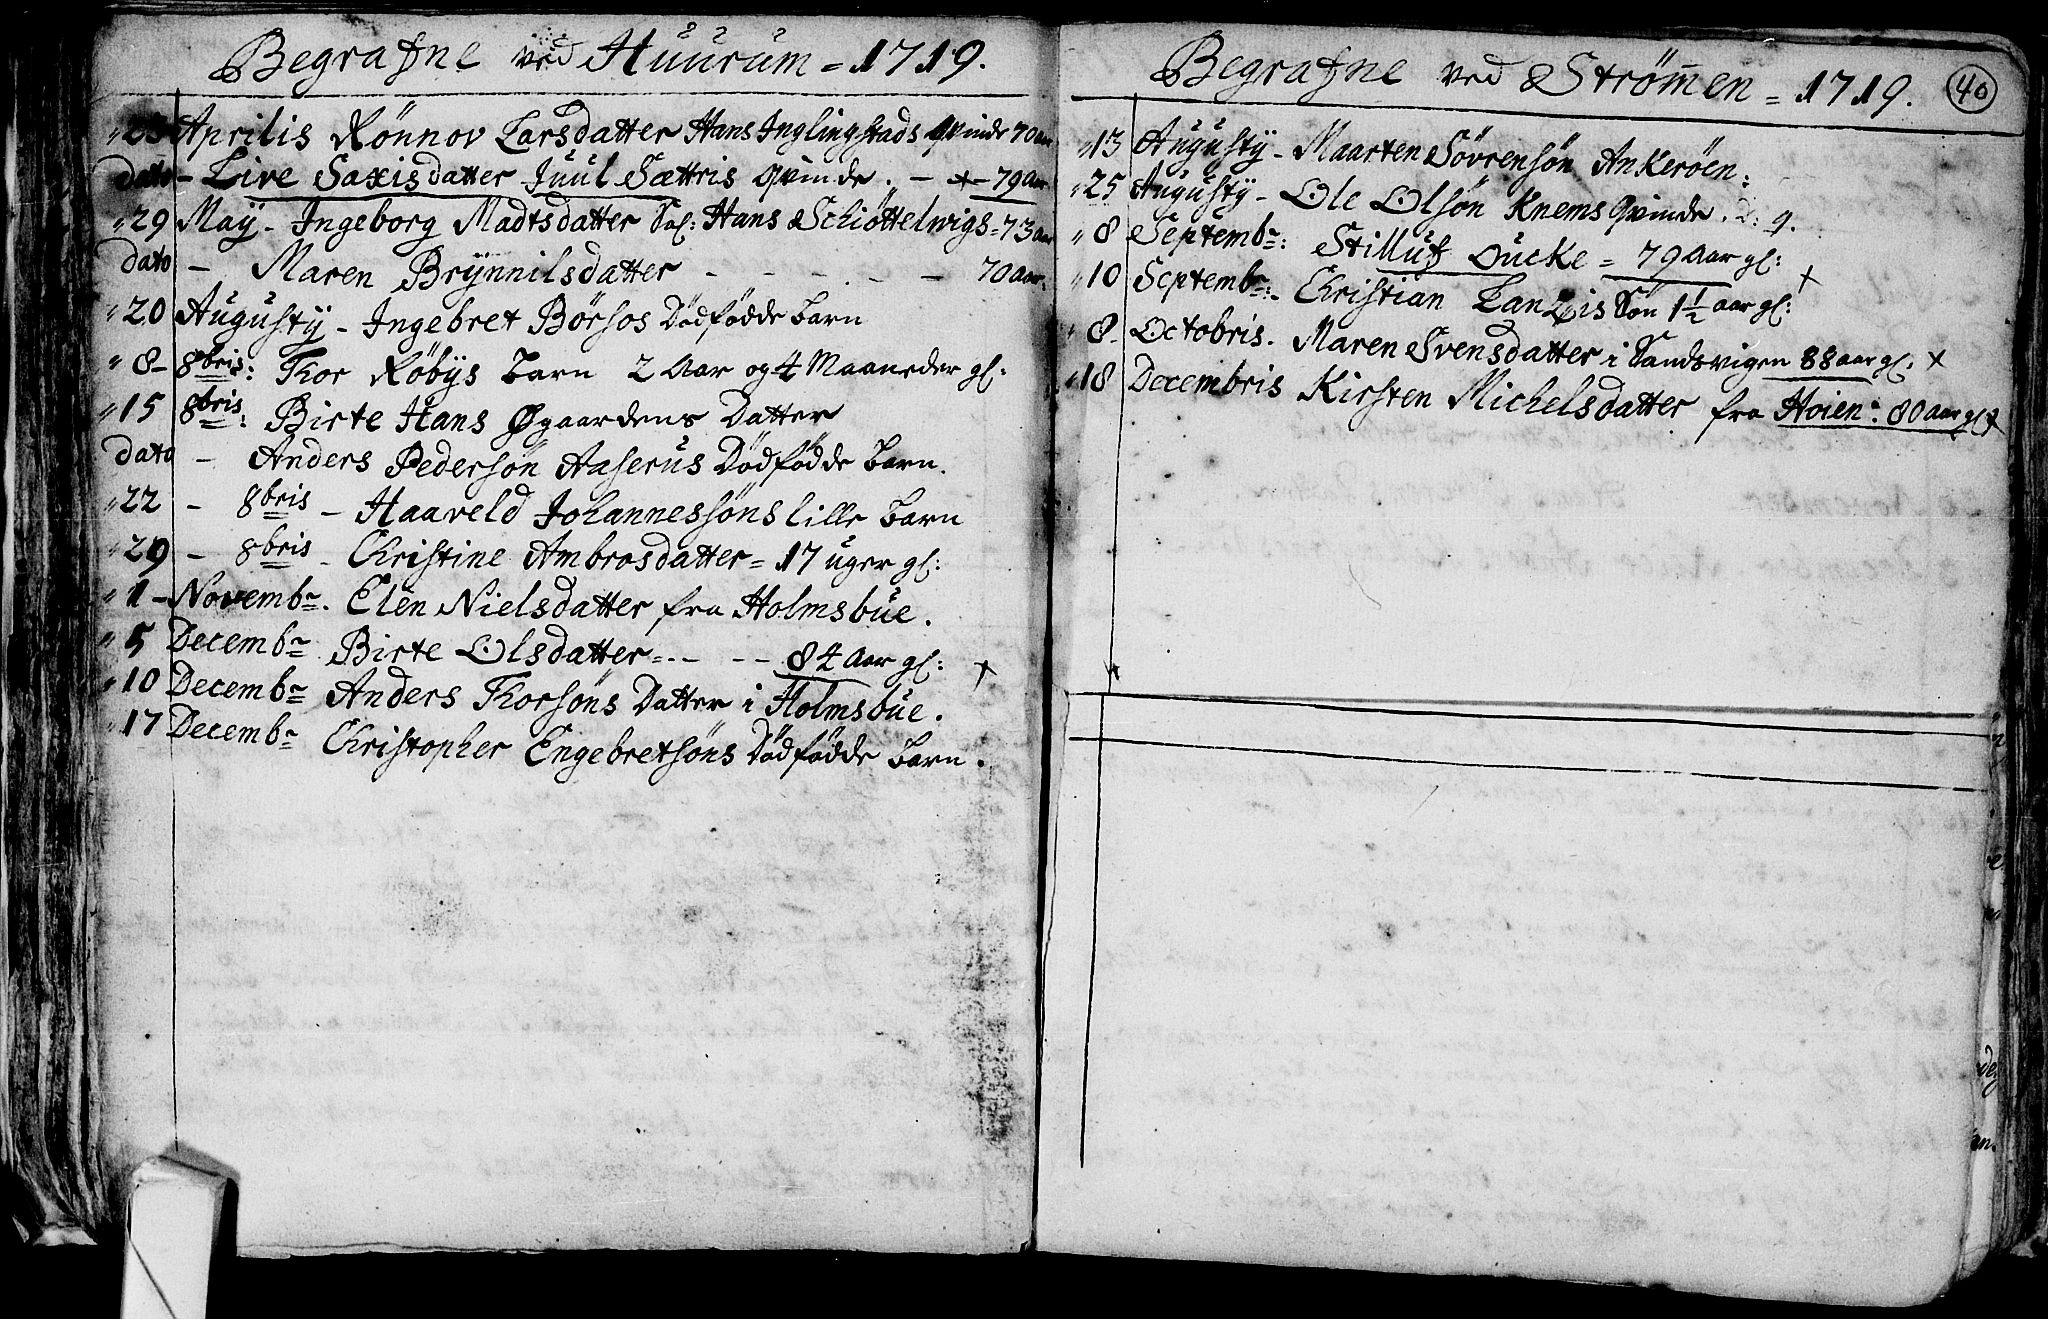 Begrafne ved Huurum = 1719.
23 Aprilis Rönnov Larsdatter Hans Inglingstads Qvinde 70 aar
dato - Live Saxisdatter Juul Sættris Qvinde. - + 79 Aar.
29 Maÿ - Ingeborg Madtsdatter Sal: Hans Schiöttelwigs = 73 aar
dato - Maren Brÿnnilsdatter - - - - - 70 aar.
20 Augustÿ - Ingebret Börsos Dödfödde barn
8 - 8bris: Thor Röbÿs barn 2 Aar og 4 Maaneder gl:
15 8bris: Birte Hans Øgaardens Datter
dato - Anders Pedersön Aaserus Dödfödde barn.
22 - 8bris - Haaveld Johannessöns lille barn
29 - 8bris - Christine Ambrosdatter = 17 uger gl:
1 - Novembr. Elen Nielsdatter fra Holmsbue.
5 Decembr Birte Olsdatter - - - - 84 Aar gl: +
10 Decembr Anders Thorsöns Datter i Holmsbue.
17 Decembr Christopher Engebretsöns Dödfödde barn.
Begrafne ved Strömen = 1719.
40
13 Augustÿ - Maarten Sövrensön Ankeröen:
25 Augustÿ - Ole Olsön Knems Qvinde.
8 Septembr: Stilluf Oucke = 79 Aar gl:
10 Septembr: - Christian Lanzis Sön 1½ aar gl: +
8 - Octobris. Maren Svensdatter i Sandsvigen 88 aar gl. +
18 Decembris Kirsten Michelsdatter fra Hoien: 80 aar gl +